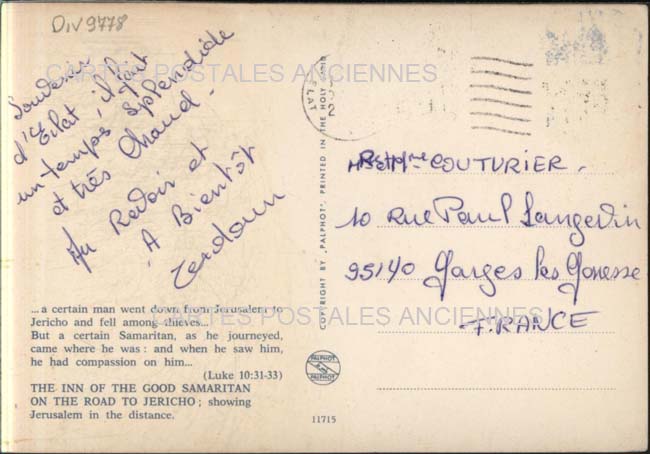 Div 9778
CARTES POSTALES ANCIENNES
Souvenir
d'Eilat, il fait
un temps splendide
et très chaud.
Au Revoir et
A Bientôt
...a certain man went down from Jerusalem to
Jericho and fell among thieves...
But a certain Samaritan, as he journeyed,
came where he was: and when he saw him,
he had compassion on him...
(Luke 10:31-33)
THE INN OF THE GOOD SAMARITAN
ON THE ROAD TO JERICHO; showing
Jerusalem in the distance.
COPYRIGHT BY "PALPHOT", PRINTED IN THE HOLY LAND
ELAT
Mme COUTURIER.
10 Rue Paul Langevin
95140 Garges les Gonesse
FRANCE
CARTES POSTALES ANCIENNES
PALPHOT
PALPHOT
11715